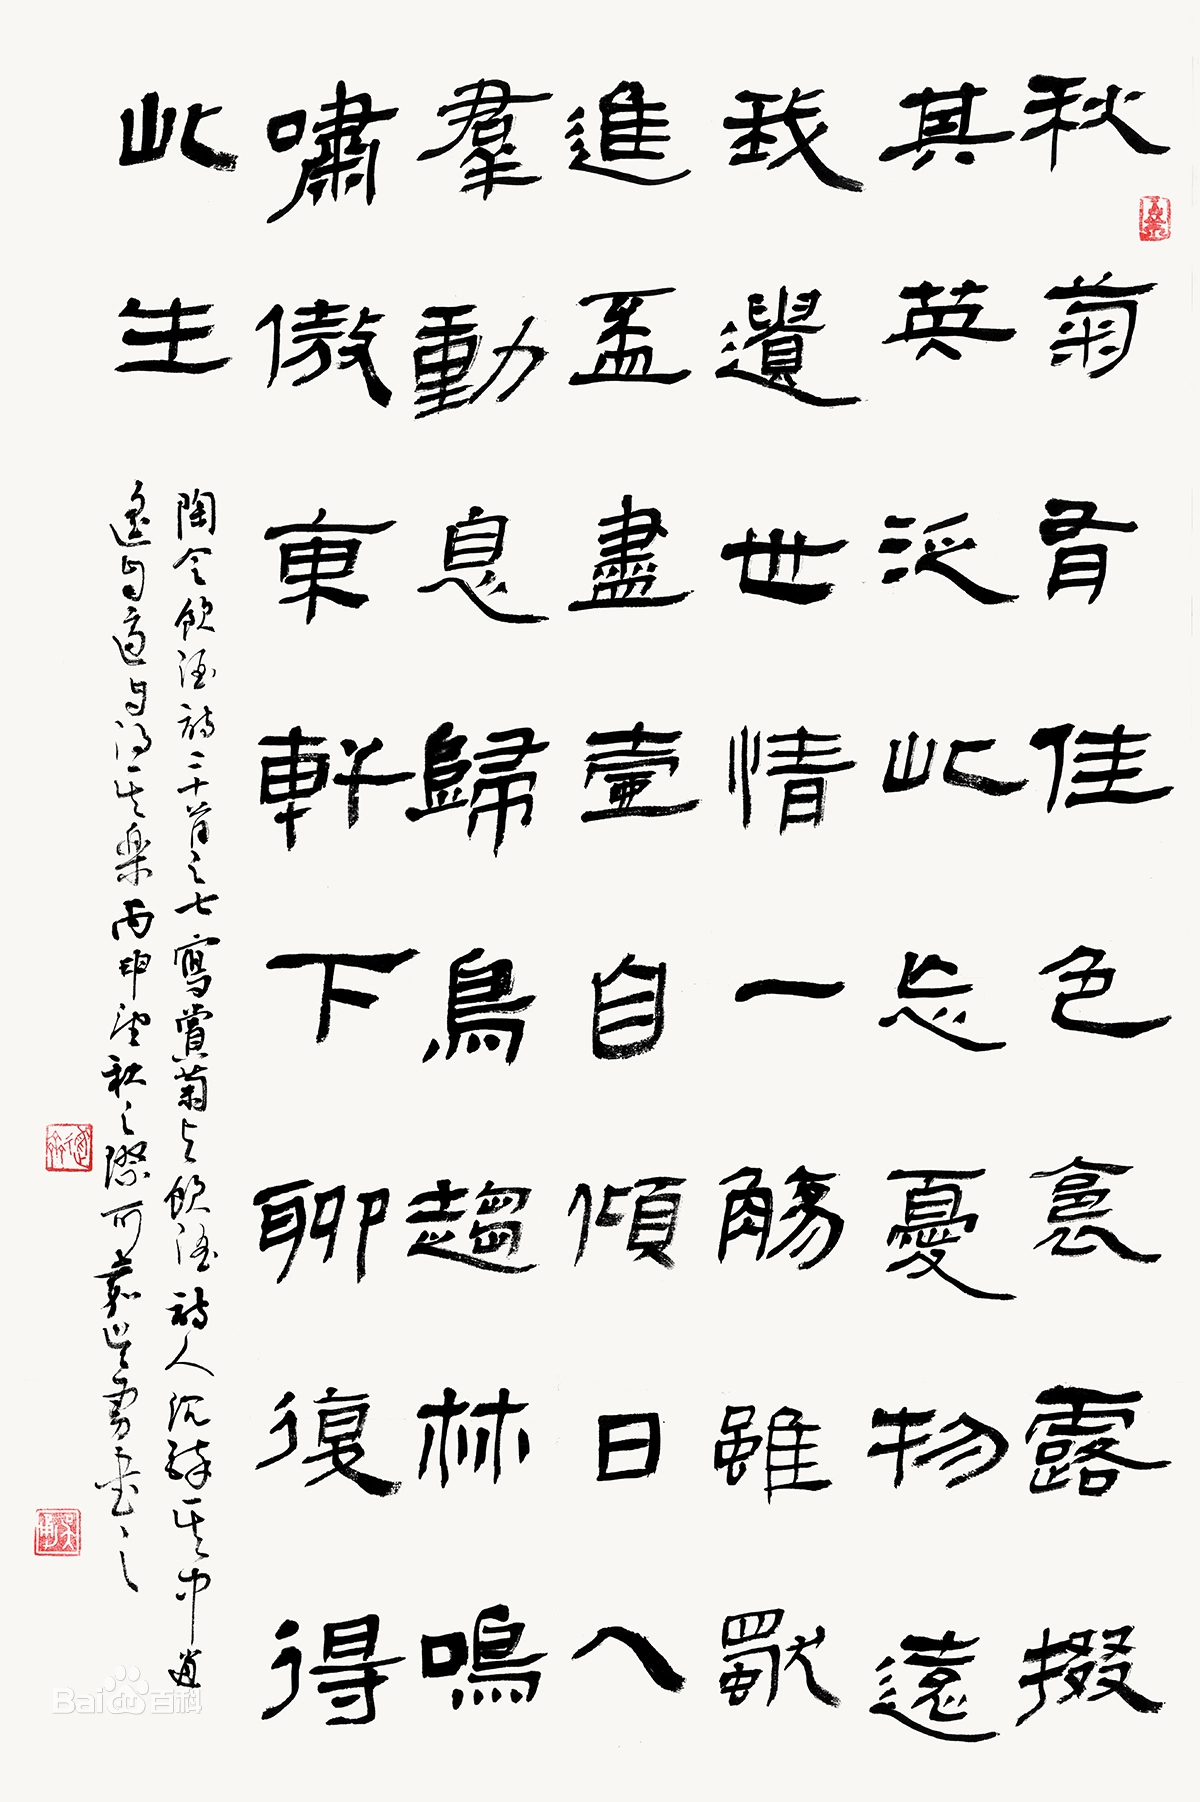 秋菊有佳色裛露掇
其英泛此忘憂物遠
我遺世情一觴雖獨
進杯盡壺自傾日入
羣動息歸鳥趨林鳴
嘯傲東軒下聊復得
此生
陶令飲酒詩二十首之七寫賞菊與飲酒詩人沉醉其中逍
遙自適自得其樂丙申望秋之際可嘉吳勇書之
Bai百科